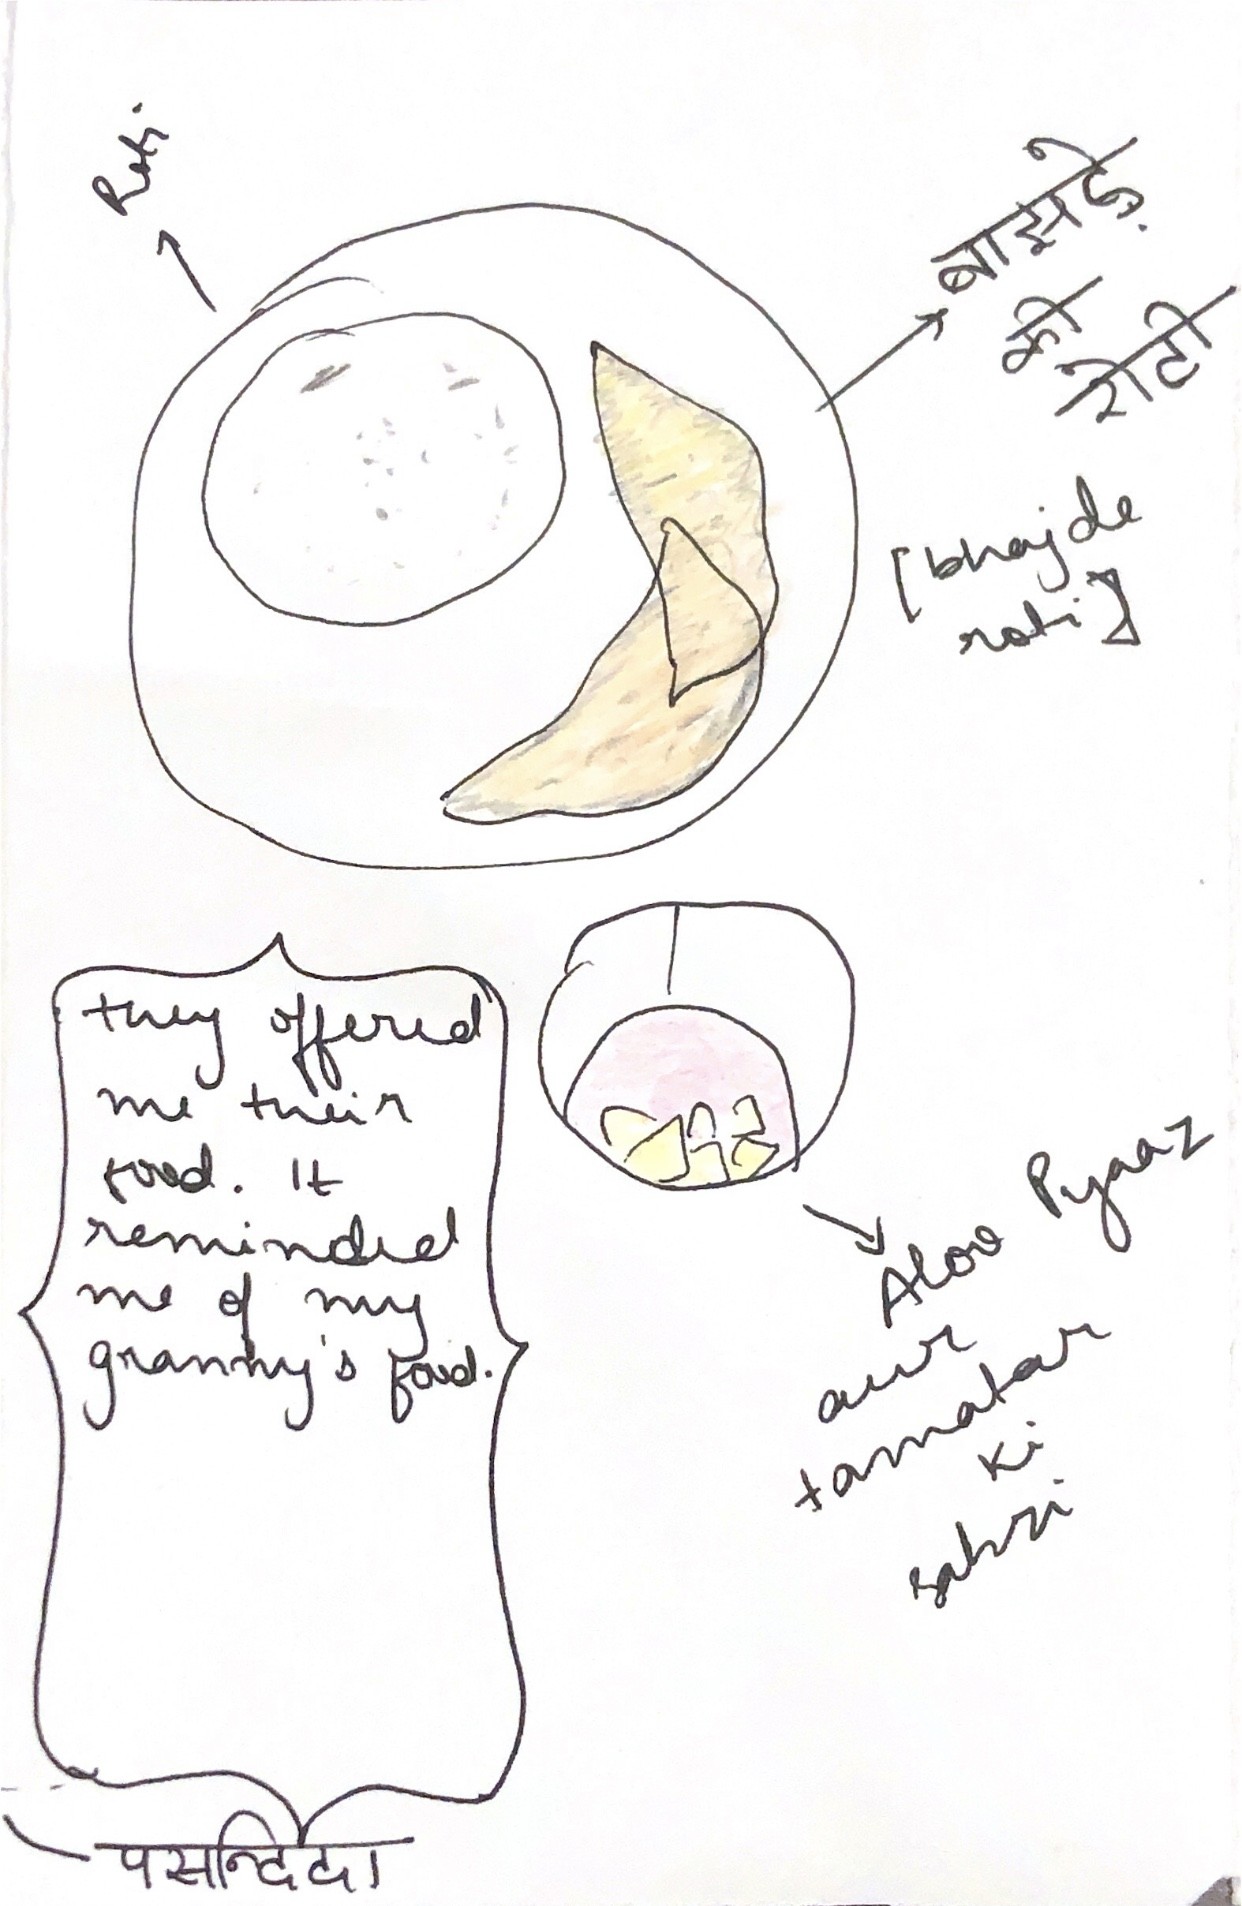 Roti
बाझड़े
की
रोटी
[bhajde
roti]
they offered
me their
food. It
reminded
me of my
granny's food.
Aloo Pyaaz
aur
tamatar
ki
sabzi
पसन्दिदा